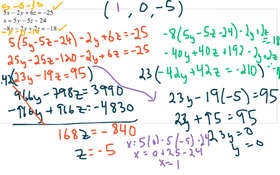 (1, 0, -5)
5x - 2y + 6z = -25
x = 5y - 5z - 24
-8x - 2y + 2z = -18
5(5y-5z-24)-2y+6z=-25
25y-25z-120-2y+6z=-25
42(23y-19z=95)
966y-798z=3990
-966y+966z=-4830
168z=-840
z=-5
-8(5y-5z-24)-2y+2z=
-40y+40z+192-2y+2z=
23(-42y+42z=-210)
23y-19(-5)=95
23y+95=95
23y=0
y=0
x=5(0)-5(-5)-24
x=0+25-24
x=1